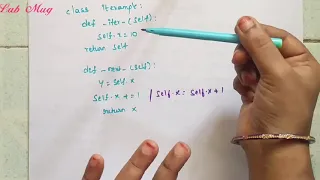 Lab Mug
class Iterexample:
def _iter_(self):
self.x=10
return self
def _next_(self):
y = self.x
self.x += 1 | self.x = self.x+1
return x